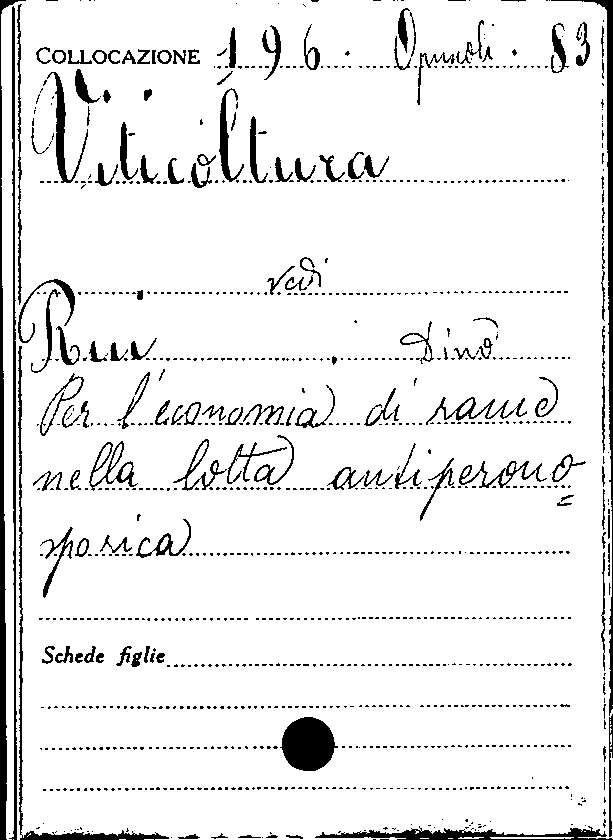 COLLOCAZIONE 196. Opuscoli. 83
Viticoltura
vedi
Rui, Dino
Per l'economia di rame
nella lotta antiperono=
sporica
Schede figlie